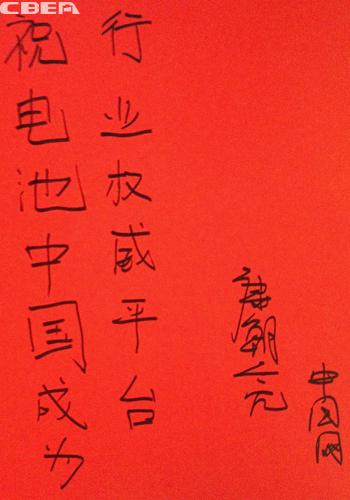 CBEA
祝电池中国成为
行业权威平台
中国网